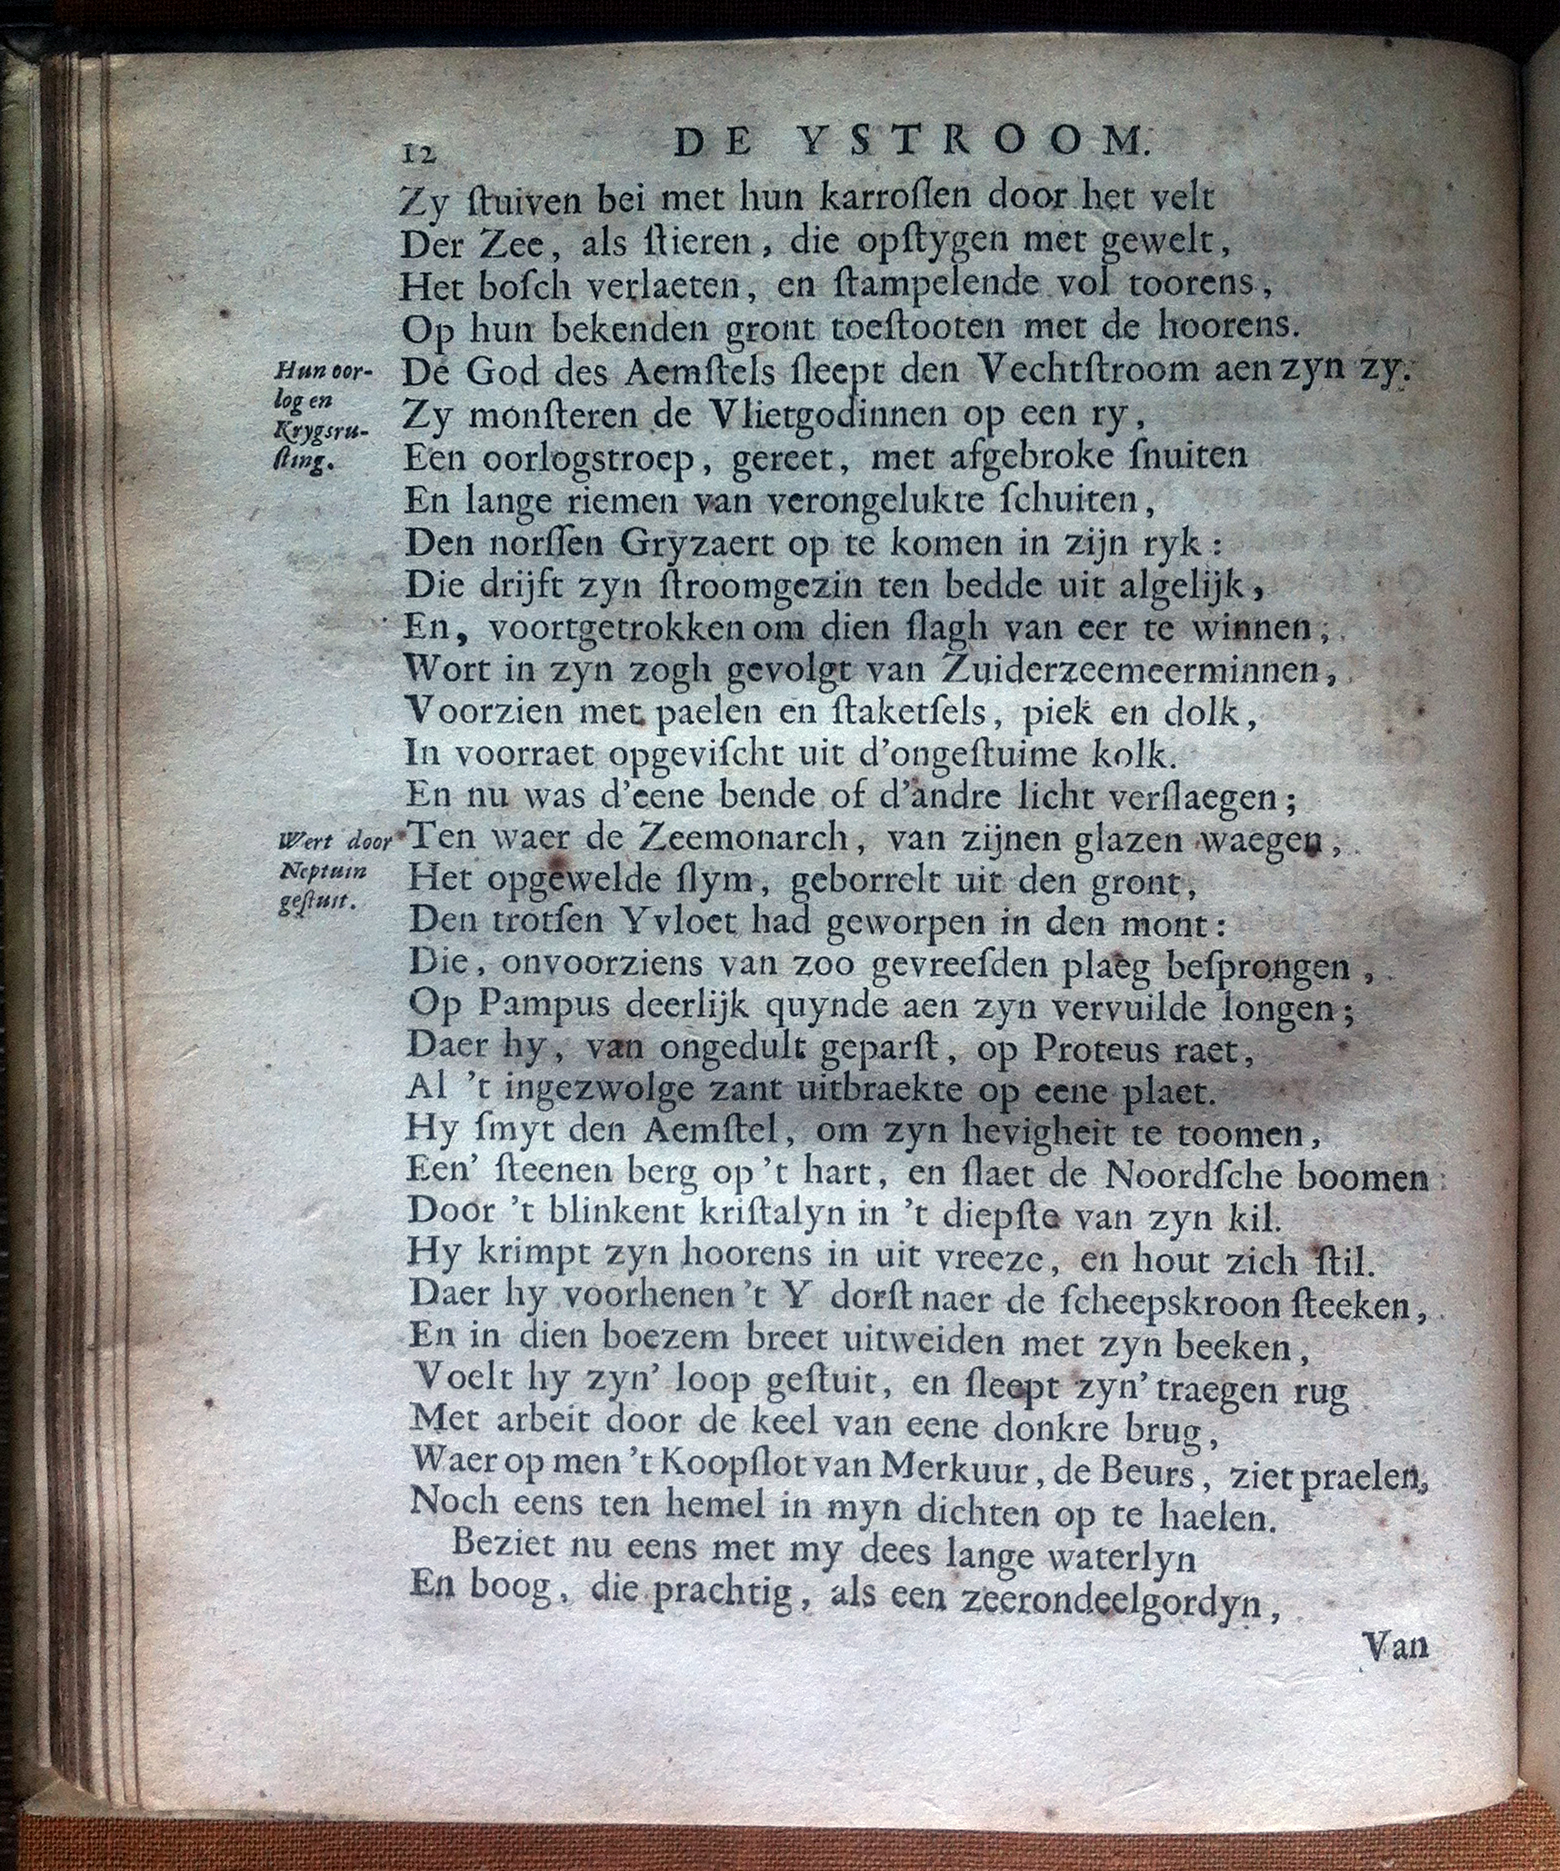 12 DE YSTROOM.
Zy ſtuiven bei met hun karroſſen door het velt
Der Zee, als ſtieren, die opſtygen met gewelt,
Het boſch verlaeten, en ſtampelende vol toorens,
Op hun bekenden gront toeſtooten met de hoorens.
Hun oor-
log en
Krygsru-
ſting.
De God des Aemſtels ſleept den Vechtſtroom aen zyn zy.
Zy monſteren de Vlietgodinnen op een ry,
Een oorlogstroep, gereet, met afgebroke ſnuiten
En lange riemen van verongelukte ſchuiten,
Den norſſen Gryzaert op te komen in zijn ryk:
Die drijft zyn ſtroomgezin ten bedde uit algelijk,
En, voortgetrokken om dien ſlagh van eer te winnen,
Wort in zyn zogh gevolgt van Zuiderzeemeerminnen,
Voorzien met paelen en ſtaketſels, piek en dolk,
In voorraet opgeviſcht uit d'ongeſtuime kolk.
En nu was d'eene bende of d'andre licht verſlaegen;
Wert door
Neptuin
geſtuit.
Ten waer de Zeemonarch, van zijnen glazen waegen,
Het opgewelde ſlym, geborrelt uit den gront,
Den trotſen Yvloet had geworpen in den mont:
Die, onvoorziens van zoo gevreeſden plaeg beſprongen,
Op Pampus deerlijk quynde aen zyn vervuilde longen;
Daer hy, van ongedult geparſt, op Proteus raet,
Al 't ingezwolge zant uitbraekte op eene plaet.
Hy ſmyt den Aemſtel, om zyn hevigheit te toomen,
Een' ſteenen berg op 't hart, en ſlaet de Noordſche boomen
Door 't blinkent kriſtalyn in 't diepſte van zyn kil.
Hy krimpt zyn hoorens in uit vreeze, en hout zich ſtil.
Daer hy voorhenen 't Y dorſt naer de ſcheepskroon ſteeken,
En in dien boezem breet uitweiden met zyn beeken,
Voelt hy zyn' loop geſtuit, en ſleept zyn' traegen rug
Met arbeit door de keel van eene donkre brug,
Waer op men 't Koopſlot van Merkuur, de Beurs, ziet praelen,
Noch eens ten hemel in myn dichten op te haelen.
Beziet nu eens met my dees lange waterlyn
En boog, die prachtig, als een zeerondeelgordyn,
Van